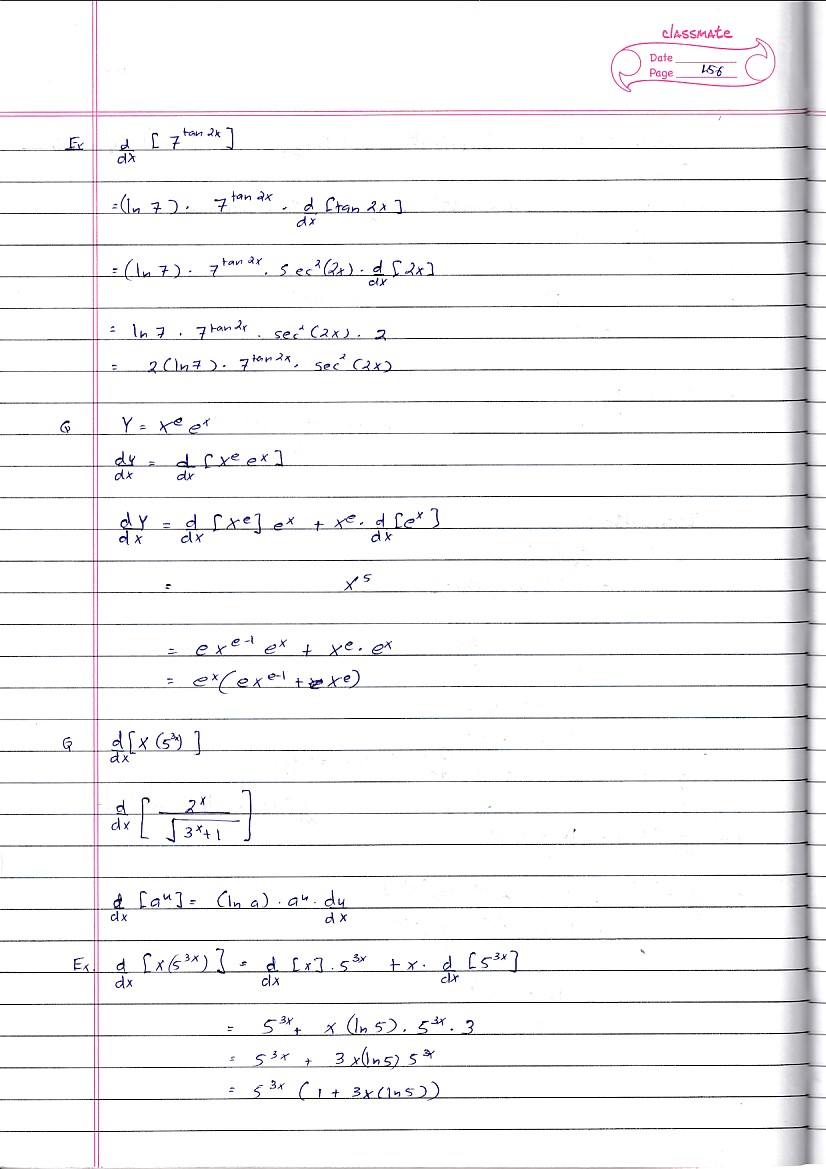 classmate
Date
Page 156
Ex d/dx [ 7^tan 2x ]
= (ln 7) · 7^tan 2x · d/dx [tan 2x]
= (ln 7) · 7^tan 2x · sec²(2x) · d/dx [2x]
= ln 7 · 7^tan 2x · sec² (2x) · 2
= 2 (ln 7) · 7^tan 2x · sec² (2x)
Q Y = x^e e^x
dy/dx = d/dx [x^e e^x]
dY/dx = d/dx [x^e] e^x + x^e · d/dx [e^x]
= x^5
= e x^(e-1) e^x + x^e · e^x
= e^x (e x^(e-1) + x^e)
Q d/dx [x (5^3x) ]
d/dx [ 2^x / √(3^x + 1) ]
d/dx [a^u] = (ln a) · a^u · du/dx
Ex. d/dx [x(5^3x) ] = d/dx [x] · 5^3x + x · d/dx [5^3x]
= 5^3x + x (ln 5) · 5^3x · 3
= 5^3x + 3x(ln 5) 5^3x
= 5^3x (1 + 3x (ln 5))